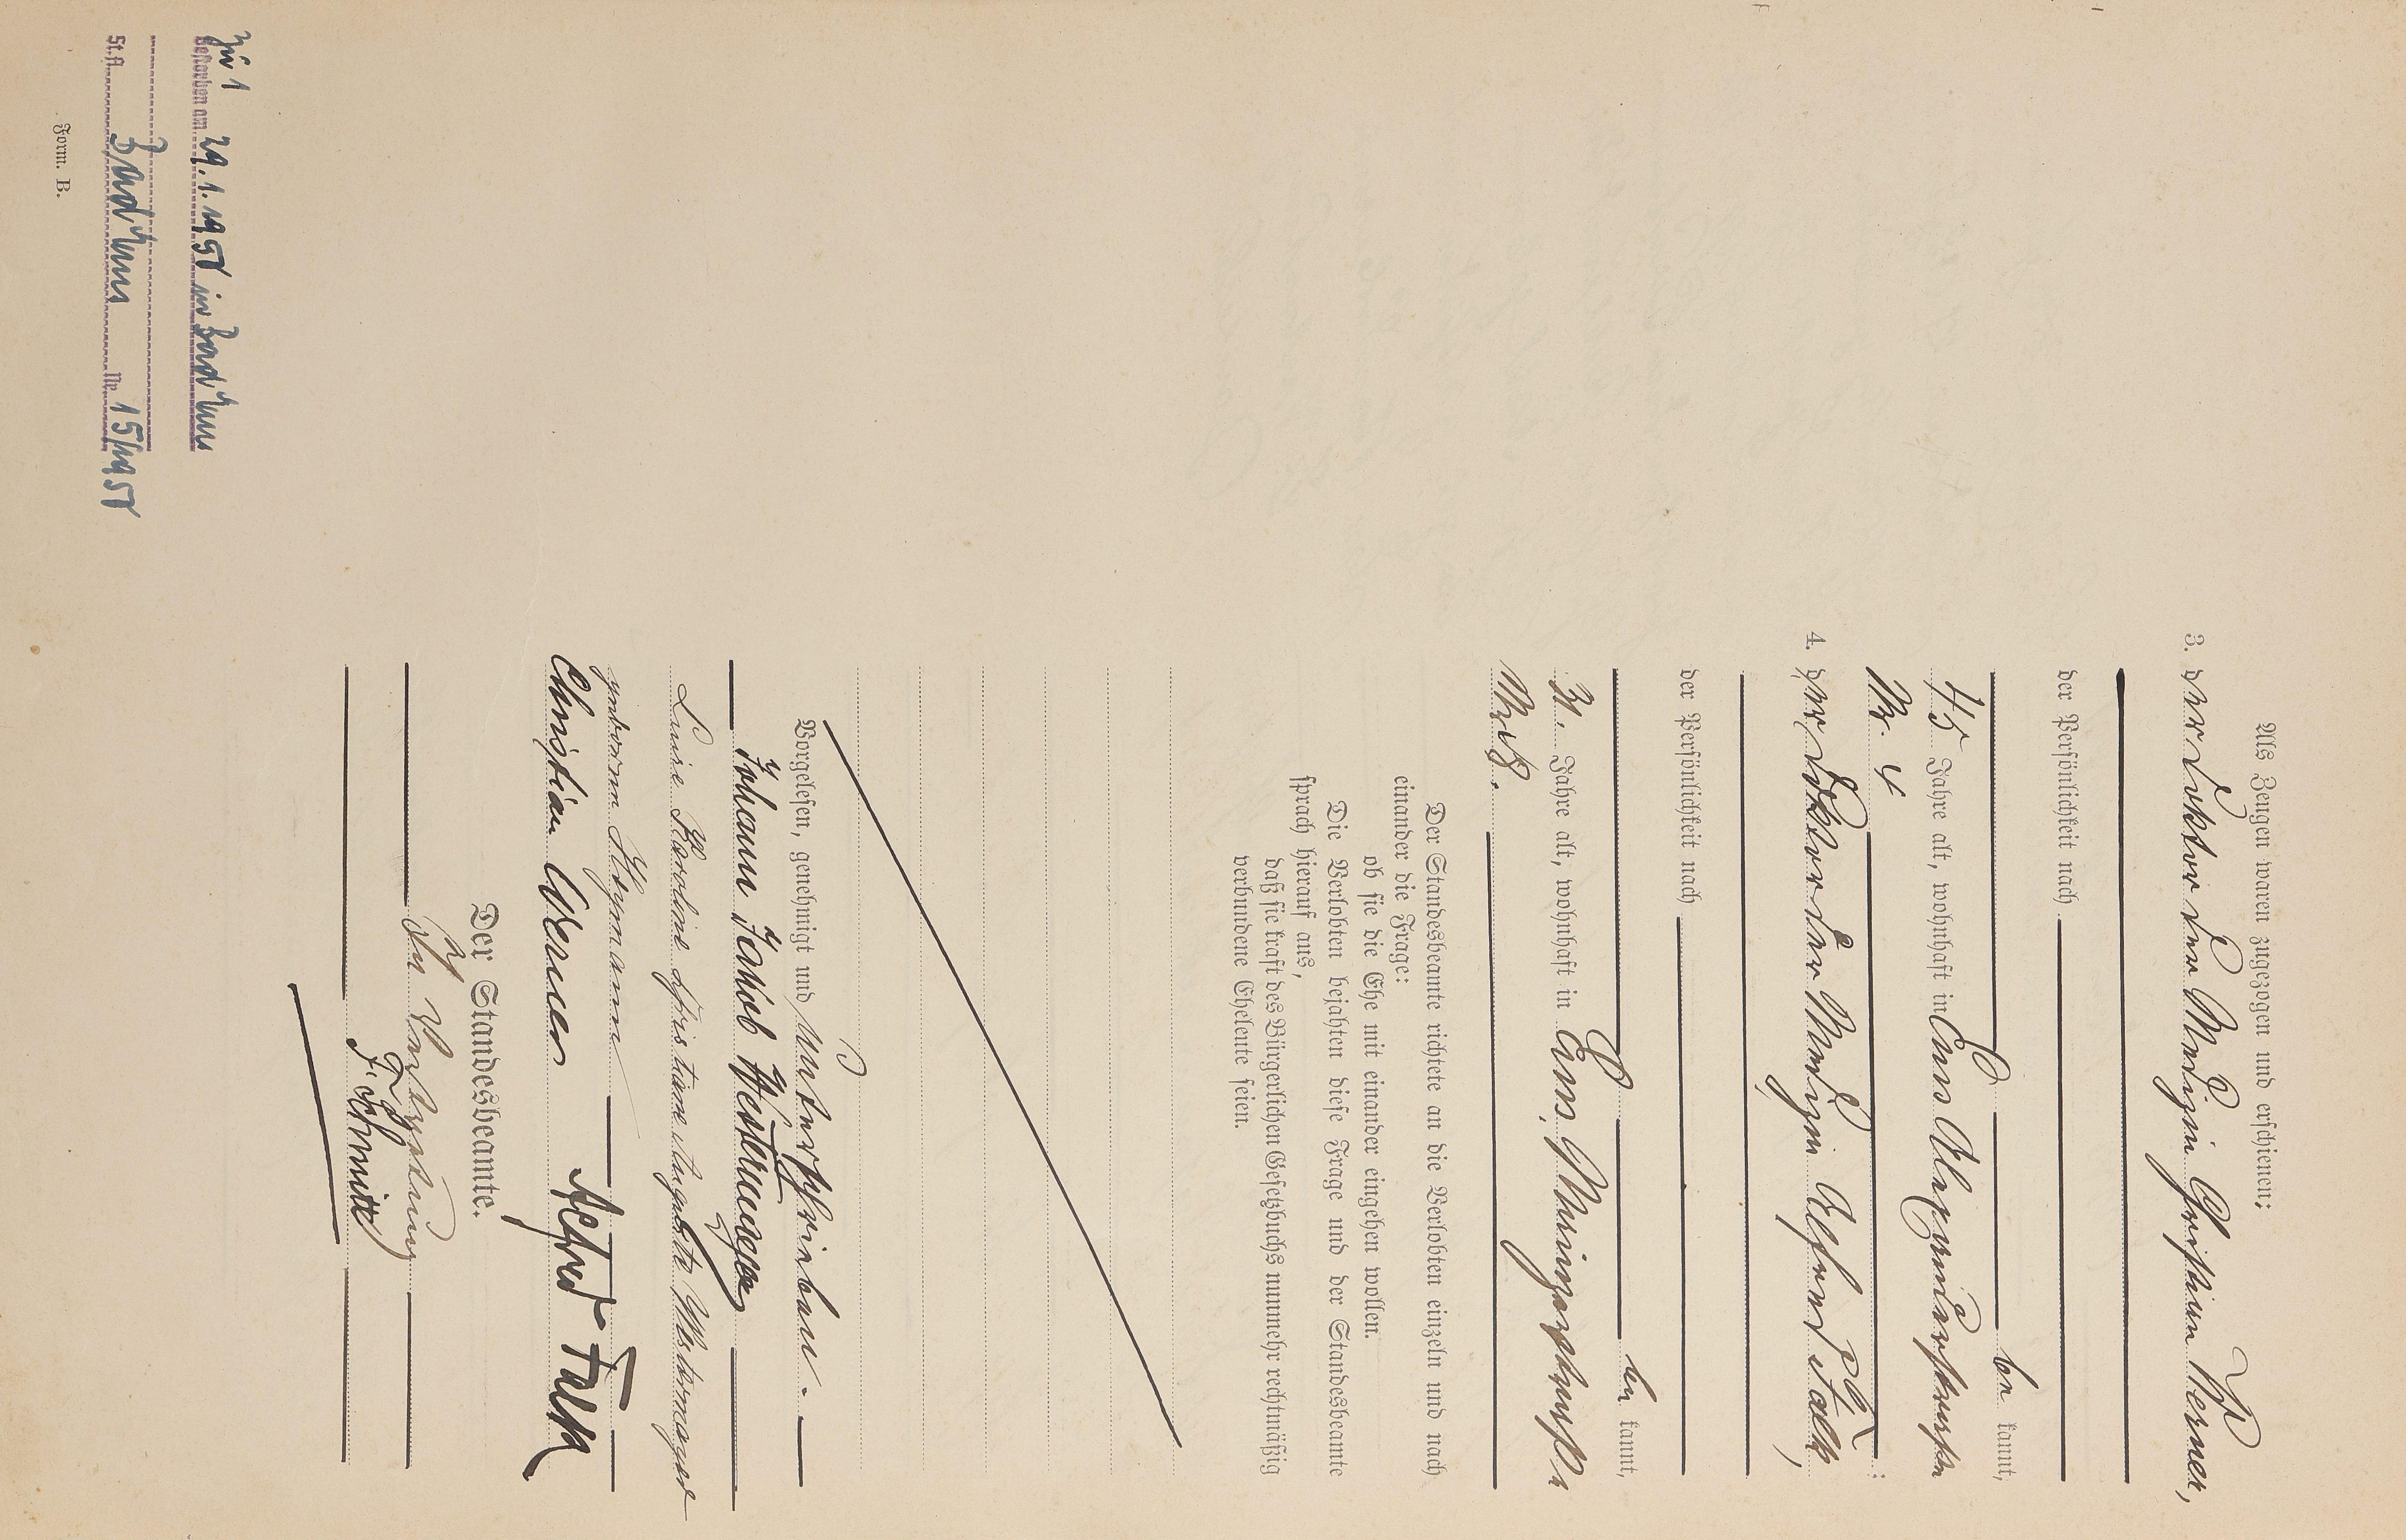 Als Zeugen waren zugezogen und erschienen:
3. der Doktor der Medizin Christian Werner,
der Persönlichkeit nach
be kannt,
45 Jahre alt, wohnhaft in Ems
Nr. 4
4. der Doktor der Medizin Alfred Falk,
der Persönlichkeit nach
be kannt,
31. Jahre alt, wohnhaft in Ems,
Der Standesbeamte richtete an die Verlobten einzeln und nach
einander die Frage:
ob sie die Ehe mit einander eingehen wollen.
Die Verlobten bejahten diese Frage und der Standesbeamte
sprach hierauf aus,
daß sie kraft des Bürgerlichen Gesetzbuchs nunmehr rechtmäßig
verbundene Eheleute seien.
Vorgelesen, genehmigt und unterschrieben.
Johann Jakob Westermeyer
Luise Karoline Christiane Auguste Westermeyer
geborene Heymann
Christian Werner Alfred Falk
Der Standesbeamte.
In Vertretung
F. Schmitt
Zu 1
Gestorben am 29.1.1958 in
St.A. Nr. 15/1958
Form. B.